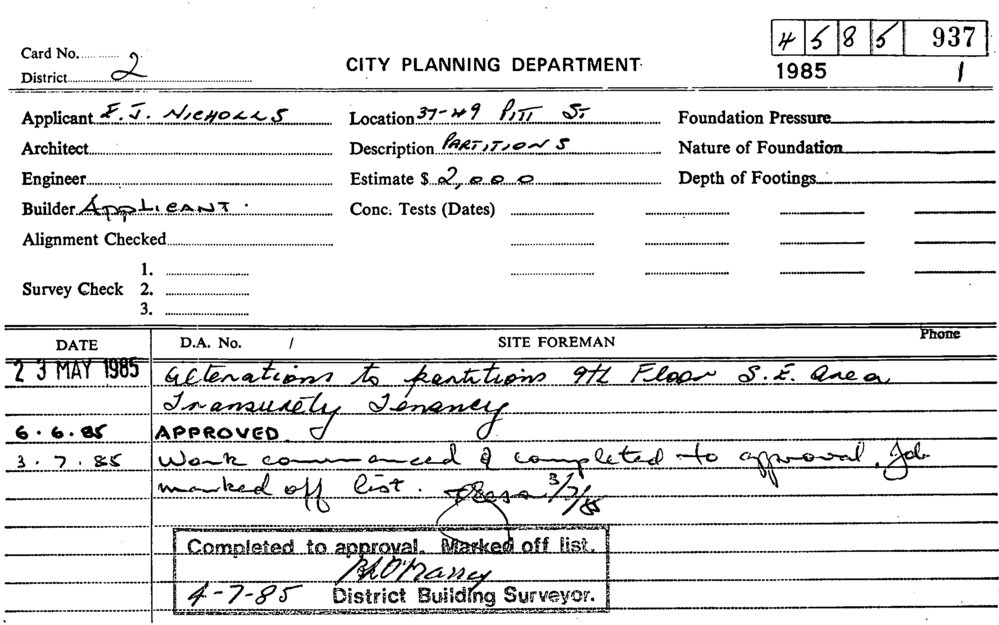 45 85 937
Card No. 2
1985 1
District 2
CITY PLANNING DEPARTMENT
Applicant E. J. NICHOLLS Location 37-49 PITT ST. Foundation Pressure
Architect Description PARTITIONS Nature of Foundation
Engineer Estimate $ 2,000 Depth of Footings
Builder APPLICANT. Conc. Tests (Dates)
Alignment Checked
1.
Survey Check 2.
3.
DATE D.A. No. / SITE FOREMAN Phone
23 MAY 1985 Alterations to partitions 9th Floor S.E. area
Transurety Tenancy
6.6.85 APPROVED
3.7.85 Work commenced & completed to approval. Job
marked off list. 3/7/85
Completed to approval. Marked off list.
4-7-85 District Building Surveyor.